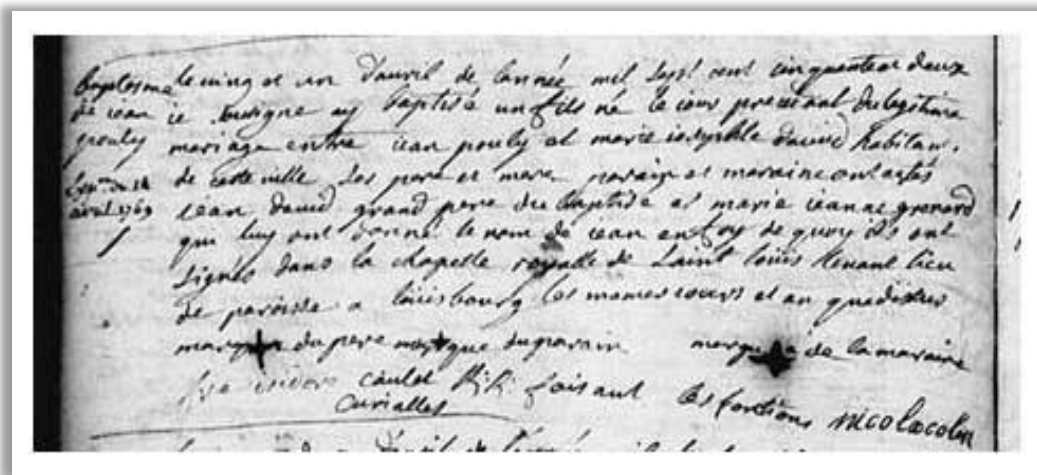 Baptesme
de iean
pouly
avril 1769
le vingt et un d'avril de lannée mil sept cent cinquante et deux
ie sousigne ay baptisé un fils né le iour precedant du legitime
mariage entre iean pouly et marie iosephle david habitan.
de cette ville Les pere et mere parain et maraine ont estés
iean david grand pere du baptisé et marie ieanne
qui luy ont donné le nom de iean en foy de quoy ils ont
signés dans la chapelle royalle de Saint louis tenant lieu
de paroisse a louisbourg les mesmes iours et an que dessus
marque du pere marque du parain marque de la maraine
isidore caulet faisant les fontions nicolacolin
curialles